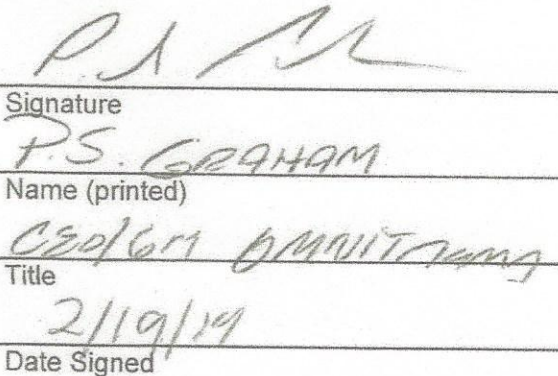 Signature
P.S. GRAHAM
Name (printed)
CEO/GM OMNITRANS
Title
2/19/19
Date Signed